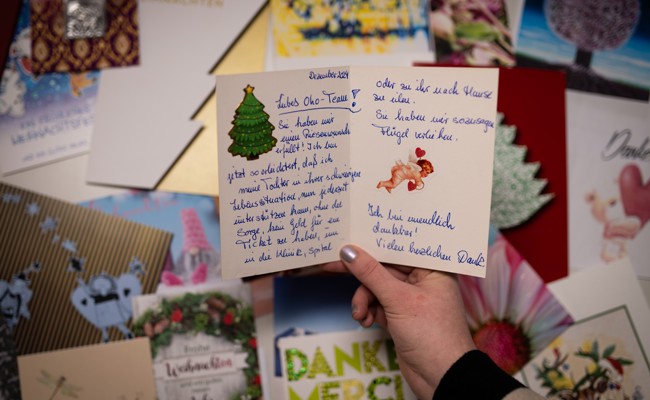 Dezember 2024
Liebes Öko-Team!
Sie haben mir
einen Riesenwunsch
erfüllt! Ich bin
jetzt so erleichtert, daß ich
meine Tochter in ihrer schwierigen
Lebenssituation, nun jederzeit
unterstützen kann, ohne die
Sorge, kein Geld für ein
Ticket zu haben, um
in die Klinik, Spital
oder zu ihr nach Hause
zu eilen.
Sie haben mir sozusagen
Flügel verliehen.
Ich bin unendlich
dankbar!
Vielen herzlichen Dank
WEIHNACHTEN
Danke
Frohe
Weihnachten
DANKE
MERCI